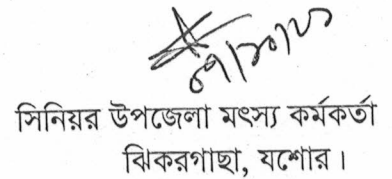 সিনিয়র উপজেলা মৎস্য কর্মকর্তা
ঝিকরগাছা, যশোর।